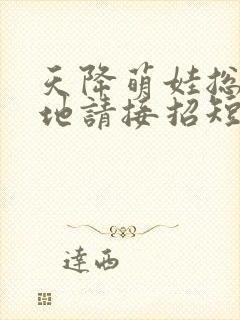 天降萌娃総
地請接招短
達西